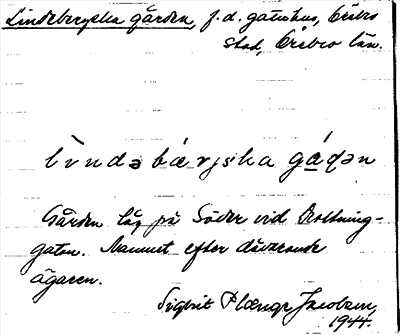 Lindebergska gården, f.d. gatuhus, Örebro
stad, Örebro län.
lìndəbærjska gá̱ɖən
Gården låg på Söder vid Drottning-
gatan. Namnet efter dåvarande
ägaren.
Sigbrit Plænge Jacobson,
1944.